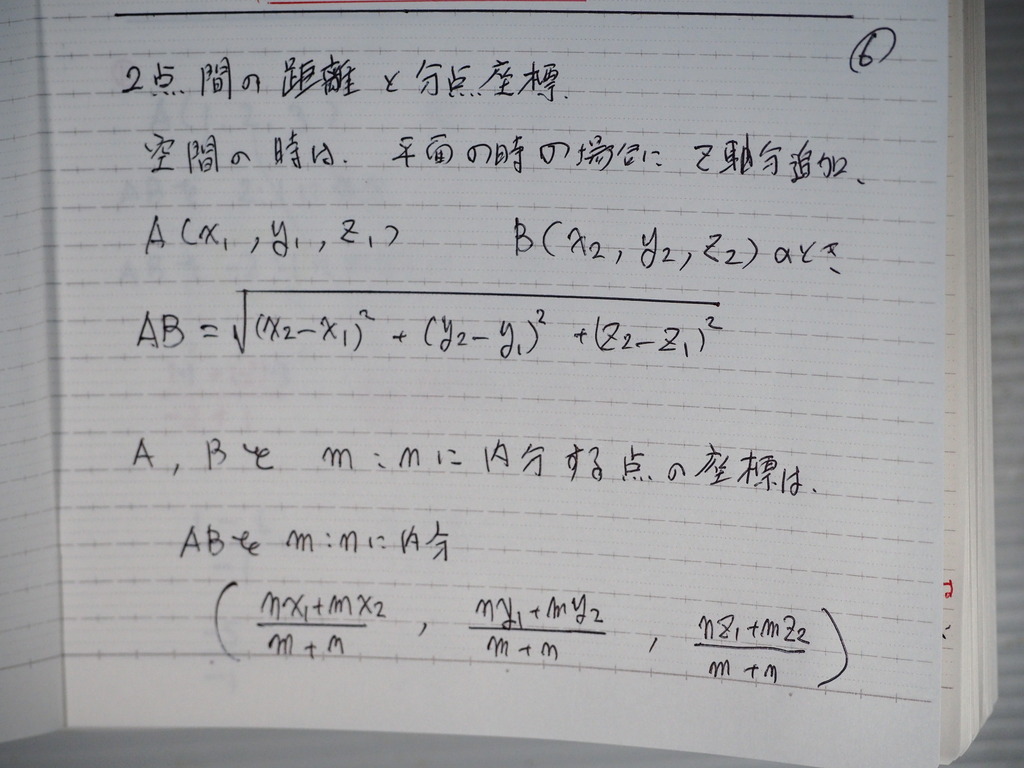 ⑥
2点間の距離と分点座標.
空間の時は、平面の時の場合にz軸分追加、
A(x₁, y₁, z₁) B(x₂, y₂, z₂)のとき、
AB = √((x₂−x₁)² + (y₂−y₁)² + (z₂−z₁)²)
A, Bを m:nに内分する点の座標は、
ABを m:nに内分
((nx₁+mx₂)/(m+n), (ny₁+my₂)/(m+n), (nz₁+mz₂)/(m+n))